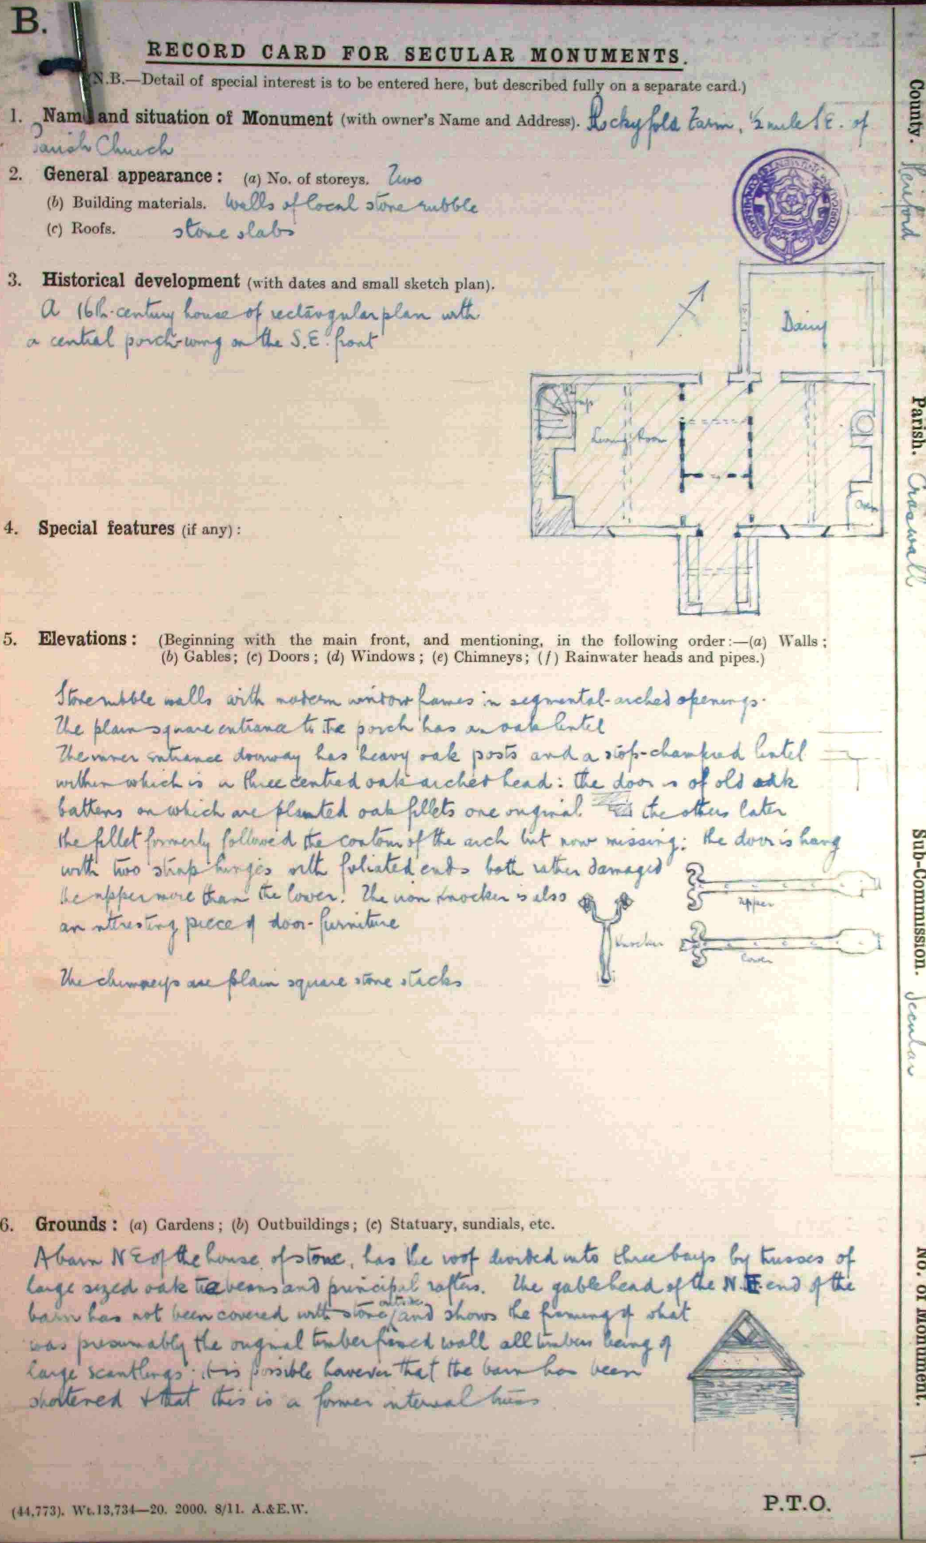 B.
RECORD CARD FOR SECULAR MONUMENTS.
(N.B.—Detail of special interest is to be entered here, but described fully on a separate card.)
1. Name and situation of Monument (with owner's Name and Address). Rockyfold Farm, ½ mile S.E. of
Parish Church
2. General appearance: (a) No. of storeys. Two
(b) Building materials. Walls of local stone rubble
(c) Roofs. stone slabs
3. Historical development (with dates and small sketch plan).
A 16th-century house of rectangular plan with
a central porch-wing on the S.E. front
Dairy
up
Living Room
Oven
4. Special features (if any):
5. Elevations: (Beginning with the main front, and mentioning, in the following order:—(a) Walls;
(b) Gables; (c) Doors; (d) Windows; (e) Chimneys; (f) Rainwater heads and pipes.)
Stone rubble walls with modern window frames in segmental-arched openings.
The plain square entrance to the porch has an oak lintel
The inner entrance doorway has heavy oak posts and a stop-chamfered lintel
within which is a three centred oak arched head: the door is of old oak
battens on which are planted oak fillets one original the others later
the fillet formerly followed the contour of the arch but now missing; the door is hung
with two strap hinges with foliated ends both rather damaged
the upper more than the lower. The iron knocker is also
an interesting piece of door-furniture
upper
Knocker
lower
The chimneys are plain square stone stacks
6. Grounds: (a) Gardens; (b) Outbuildings; (c) Statuary, sundials, etc.
A barn N.E of the house, of stone, has the roof divided into three bays by trusses of
large sized oak tie beams and principal rafters. The gable head of the N.E end of the
barn has not been covered with stone outside and shows the framing of what
was presumably the original timber framed wall all timbers being of
large scantlings; it is possible however that the barn has been
shortened & that this is a former internal truss
(44,773). Wt.13,734—20. 2000. 8/11. A.&E.W.
P.T.O.
County. Hereford
Parish. Craswall
Sub-Commission. Secular
No. of Monument.